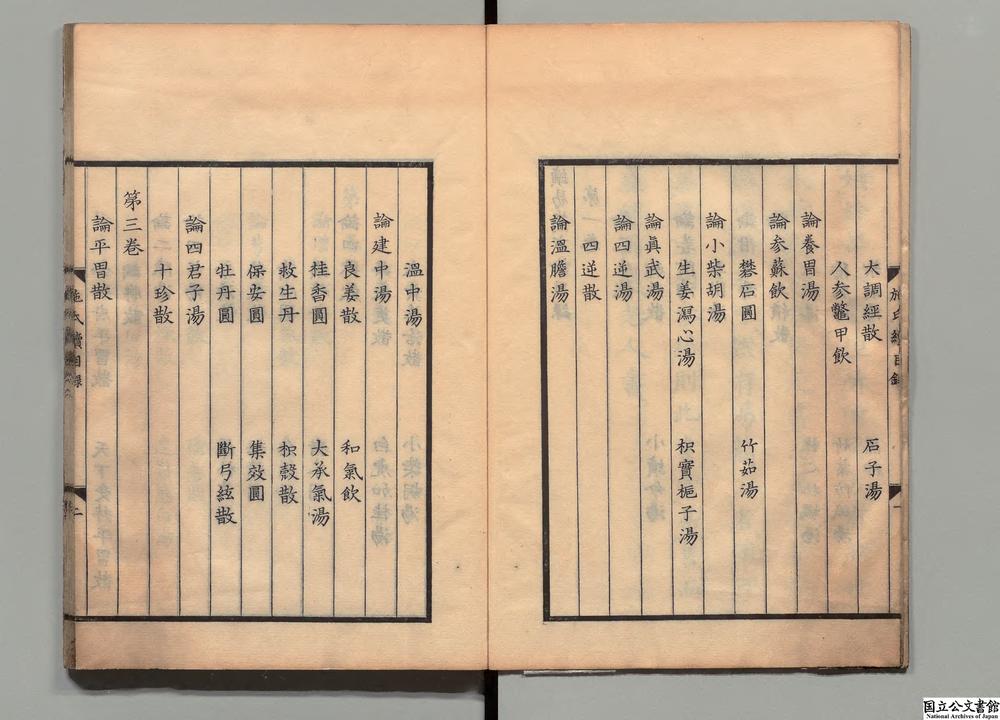 大調經散 石子湯
人参鼈甲飲
論養胃湯
論参蘇飲
礬石圓 竹茹湯
論小柴胡湯
生姜瀉心湯 枳實梔子湯
論真武湯
論四逆湯
四逆散
論溫膽湯
溫中湯
論建中湯
良姜散 和氣飲
桂香圓 大承氣湯
救生丹 枳殼散
保安圓 集效圓
牡丹圓 斷弓絃散
論四君子湯
十珍散
第三卷
論平胃散
二
国立公文書館
National Archives of Japan